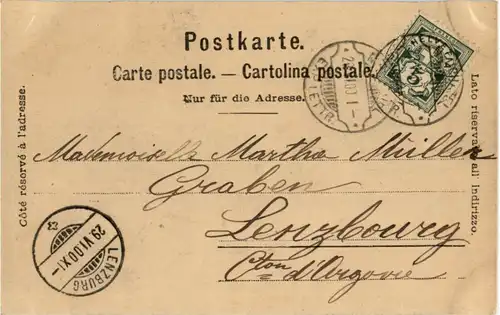 Postkarte.
Carte postale. — Cartolina postale.
Nur für die Adresse.
Côté réservé à l'adresse.
Lato riservato all' indirizzo.
Mademoiselle Martha Müller
Graben
Lenzbourg
Cton d'Argovie
29.VI.00.XI-
LENZBURG